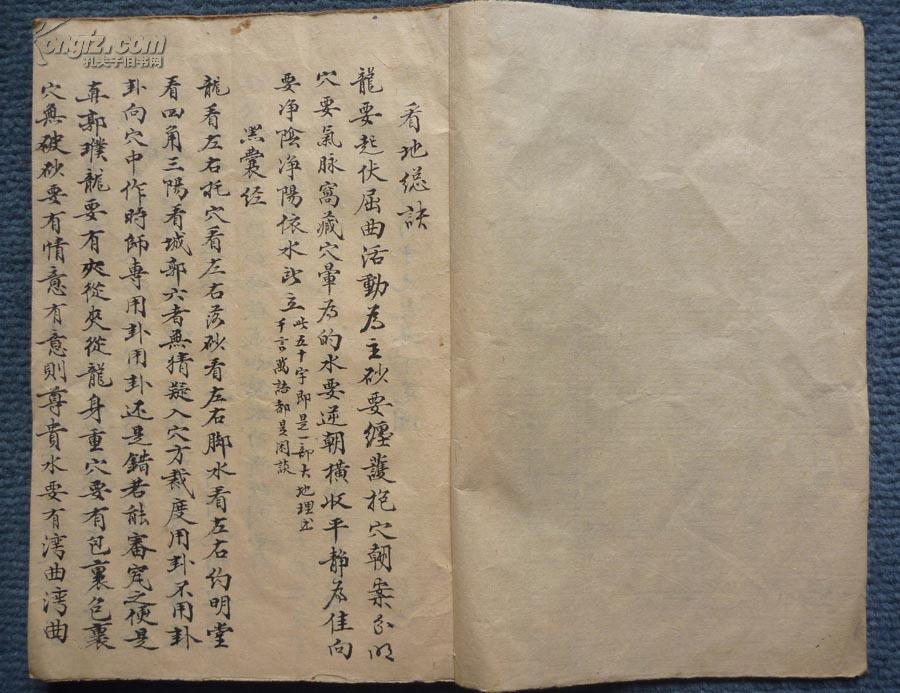 看地總訣
龍要起伏屈曲活動為主砂要纏護抱穴朝案分明
穴要氣脉窩藏穴暈為的水要逆朝橫收平靜為佳向
要净陰净陽依水此立
此五十字即是一部大地理書
千言萬語都是閑談
黑囊经
龍看左右托穴看左右落砂看左右脚水看左右约明堂
看四角三陽看城郭六者無猜疑入穴方裁度用卦不用卦
卦向穴中作時師專用卦用卦还是錯若能審究之便是
真郭璞龍要有夾從夾從龍身重穴要有包裹包裹
穴無破砂要有情意有意則尊貴水要有湾曲湾曲
kongfz.com
孔夫子旧书网